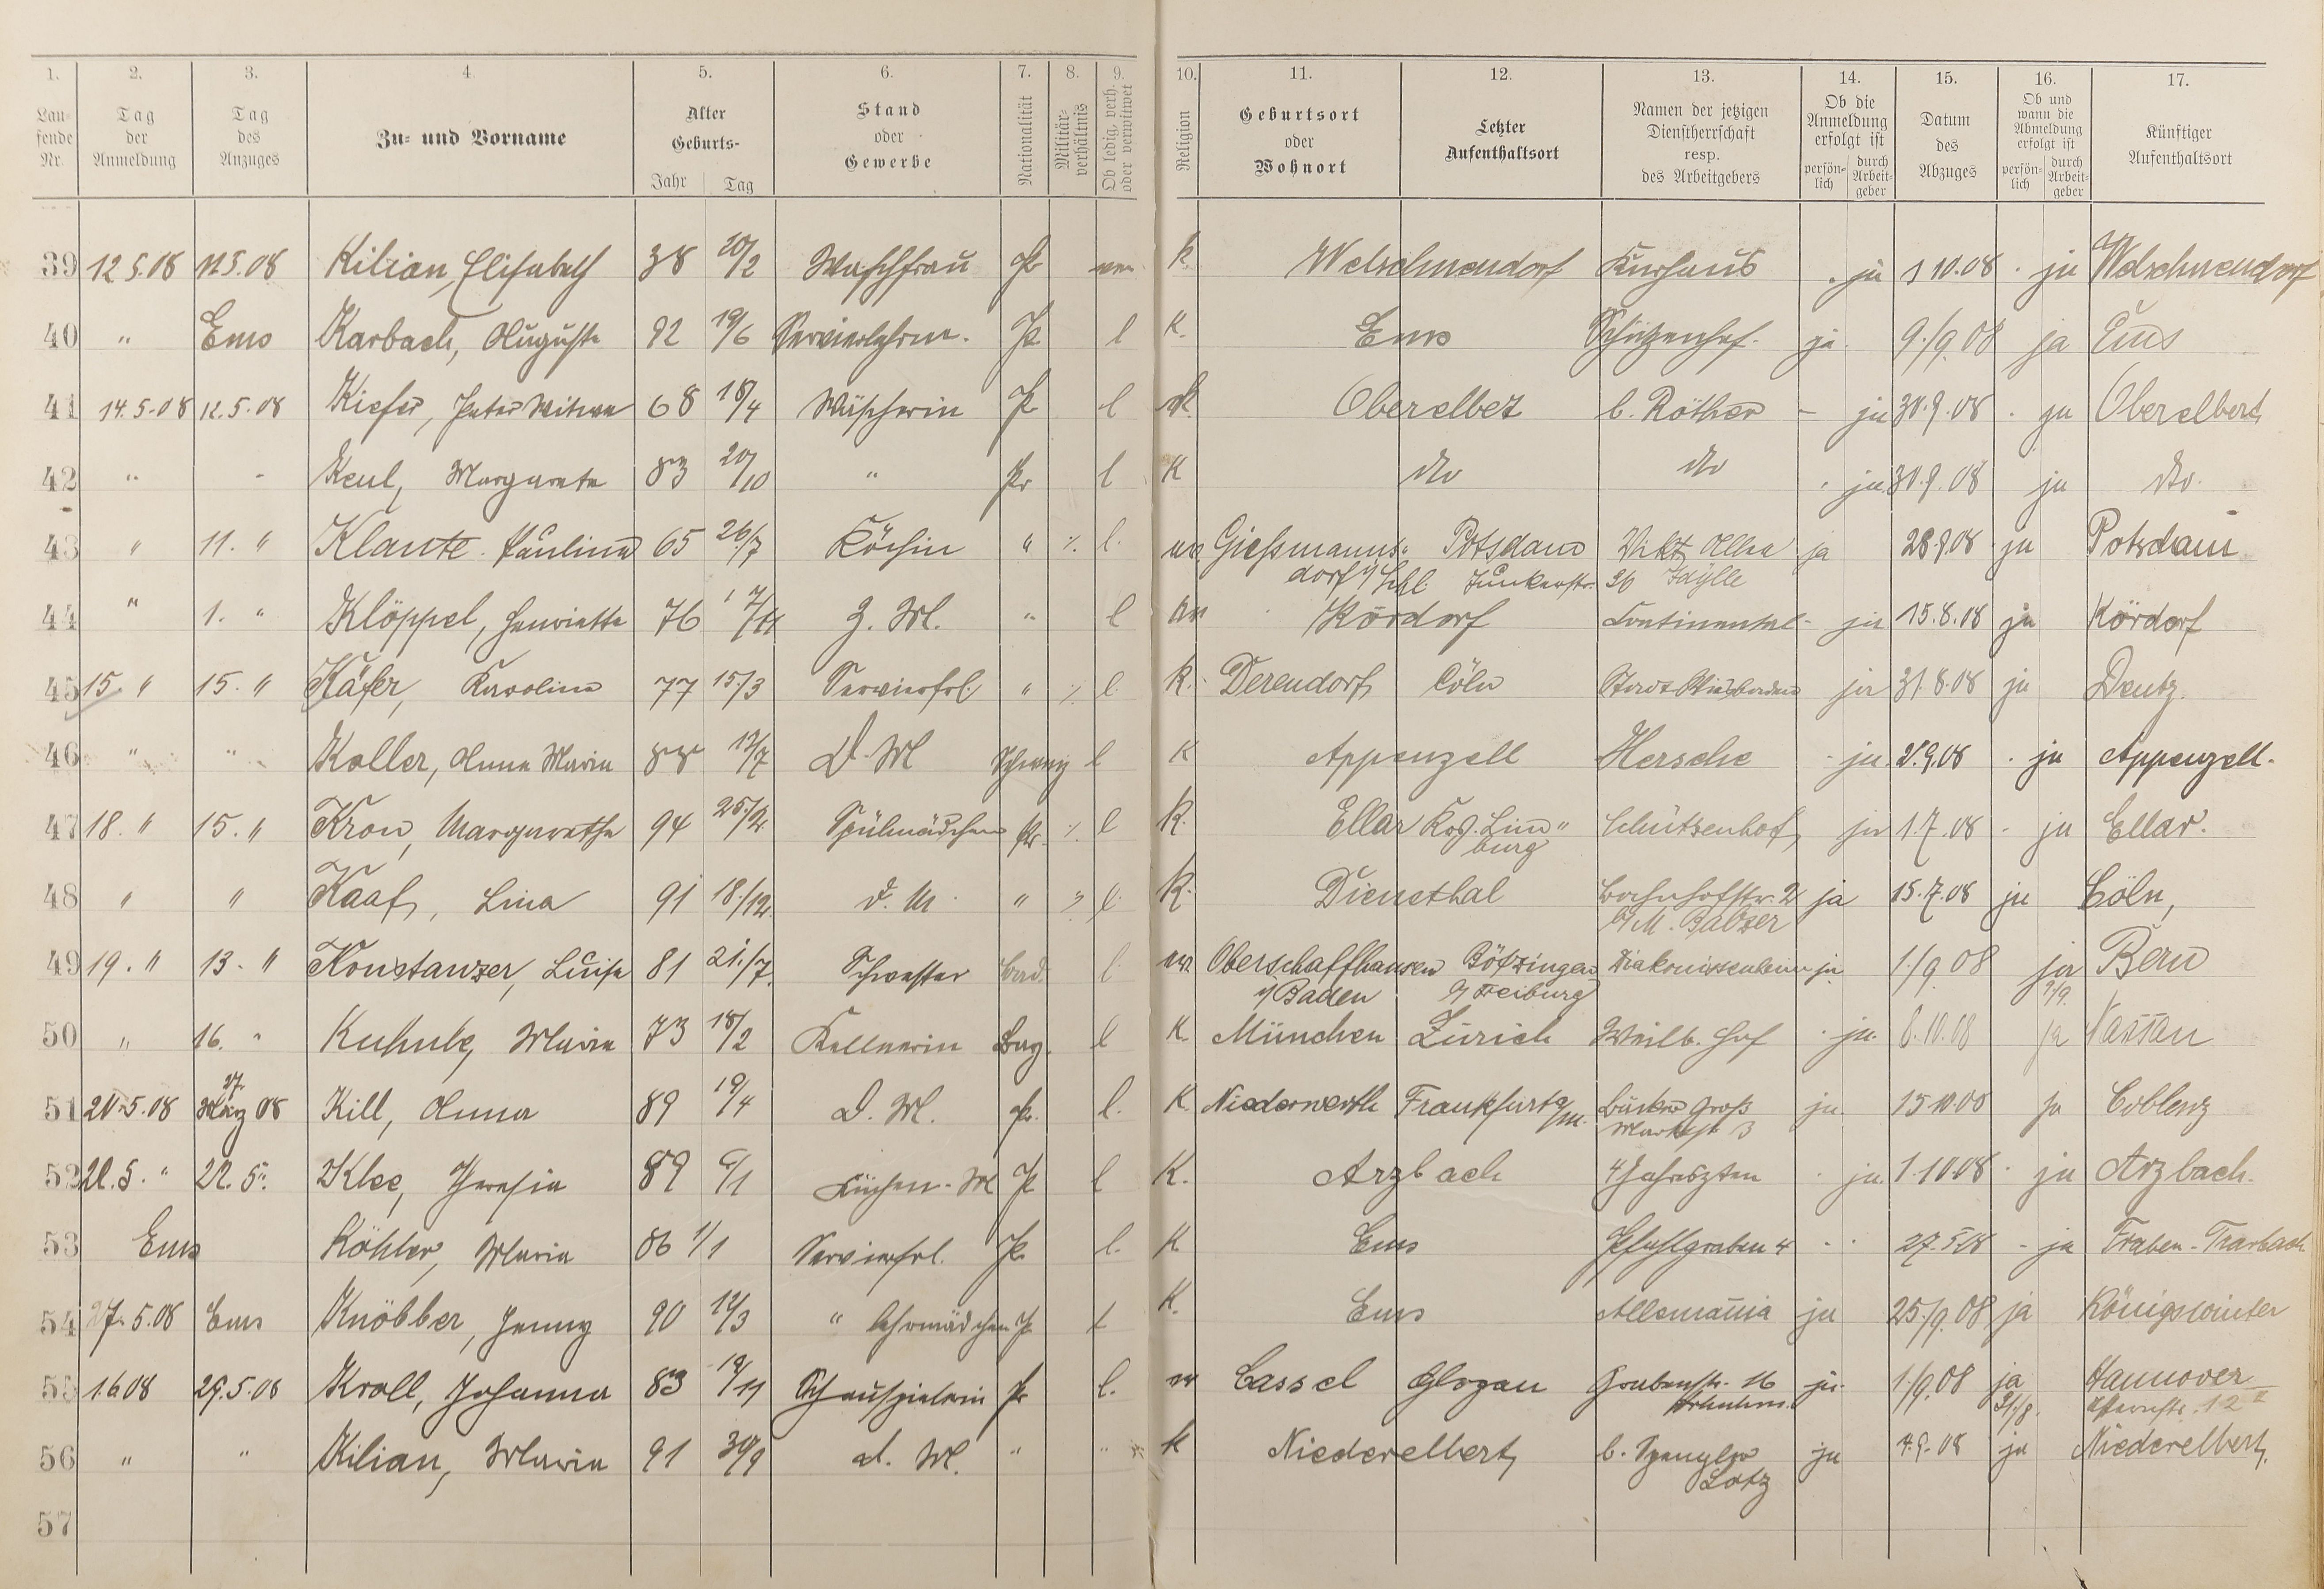 1. 2. 3. 4. 5. 6. 7. 8. 9. 10. 11. 12. 13. 14. 15. 16. 17.
Laufende Nr.
Tag der Anmeldung
Tag des Anzuges
Zu- und Vorname
Alter Geburts- Jahr Tag
Stand oder Gewerbe
Nationalität
Militär-verhältnis
Ob ledig, verh. oder verwitwet
Religion
Geburtsort oder Wohnort
Letzter Aufenthaltsort
Namen der jetzigen Dienstherrschaft resp. des Arbeitgebers
Ob die Anmeldung erfolgt ist persön-lich durch Arbeit-geber
Datum des Abzuges
Ob und wann die Abmeldung erfolgt ist persön-lich durch Arbeit-geber
Künftiger Aufenthaltsort
39 12 5.08 12 5.08 Kilian, Elisabeth 38 20/2 Waschfrau Pr K. Welschneudorf Kurhaus ja 1 10.08 ja Welschneudorf
40 " Ems Karbach, Auguste 92 19/6 Pr l K. Ems Schützenhof. ja 9./9.08 ja Ems
41 14.5.08 12.5.08 Kiefer, Peter Witwe 68 18/4 Wäscherin Pr l K. Oberelbert b. Röther - ja 30.9.08 ja Oberelbert
42 " - Keul, Margareta 83 20/10 " Pr l K do do ja 30.9.08 ja do.
43 " 11. " Klante. Pauline 65 26/7 Köchin " l. Giessmanns- Potsdam Vikt. Allee ja 28.9.08 ja Potsdam
dorf i/ Schl. Junkerstr. 26 Idylle
44 " 1. " Klöppel, Henriette 76 7/11 Z. M. " l Kördorf Continental - ja 15.8.08 ja Kördorf
45 15 " 15. " Käfer, Karoline 77 15./3 Servierfrl. " l. K. Derendorf Cöln Stadt Wiesbaden ja 31.8.08 ja Deutz.
46 " " Koller, Anna Maria 88 12/7 D. M Schweiz l K Appenzell Hersche - ja 2.9.08 ja Appenzell.
47 18. " 15. " Kron, Margarethe 94 25./2. Spülmädchen Pr. l K. Ellar Krs. Lim- Schützenhof ja 1.7.08 - ja Ellar.
burg
48 " " Kaaf, Lina 91 18./12. d. M. " l. K. Diensthal Bahnhofstr. 2 ja 15.7.08 ja Cöln,
b/ M. Balzer
49 19. " 13. " Konstanzer, Luise 81 21./7. Schwester Bad. l. Oberschaffhausen Bötzingen Diakonissenheim ja 1./9 08 ja Bern
i/ Baden b/ Freiburg
50 " 16. " Kuhnle, Maria 73 18/2 Kellnerin Bay. l K. München Zürich Weilb. Hof ja. 8.10.08 ja Nassau
51 20.5.08 27. März 08 Kill, Anna 89 19/4 D. M. Pr. l. K. Niederwerth Frankfurt a/M. Bäcker Groß ja. 15 10 08 ja Coblenz
Marktstr 3
52 21.5. " 22. 5". Klee, Theresia 89 6/1 Küchen-M Pr l K. Arzbach 4 Jahreszten ja. 1.10 08 ja Arzbach.
53 Ems Köhler, Maria 86 1/1 Servierfrl. Pr. l. K Ems Pfahlgraben 4 27.5.08 - ja Traben-Trarbach
54 27.5.08 Ems Knöbber, Jenny 90 12/3 " lehrmädchen Pr l K. Ems Allemania ja 25./9.08 ja Königswinter
55 1.6 08 29.5.08 Kroll, Johanna 83 /11 Schauspielerin Pr l. Cassel Glogau Grabenstr. 16 ja. 1./9.08 ja Hannover
31./8. 12 II
56 " " Kilian, Maria 91 30/9 d. M. " " K Niederelbert b. Spengler ja 4.9.08 ja Niederelbert.
Lotz
57